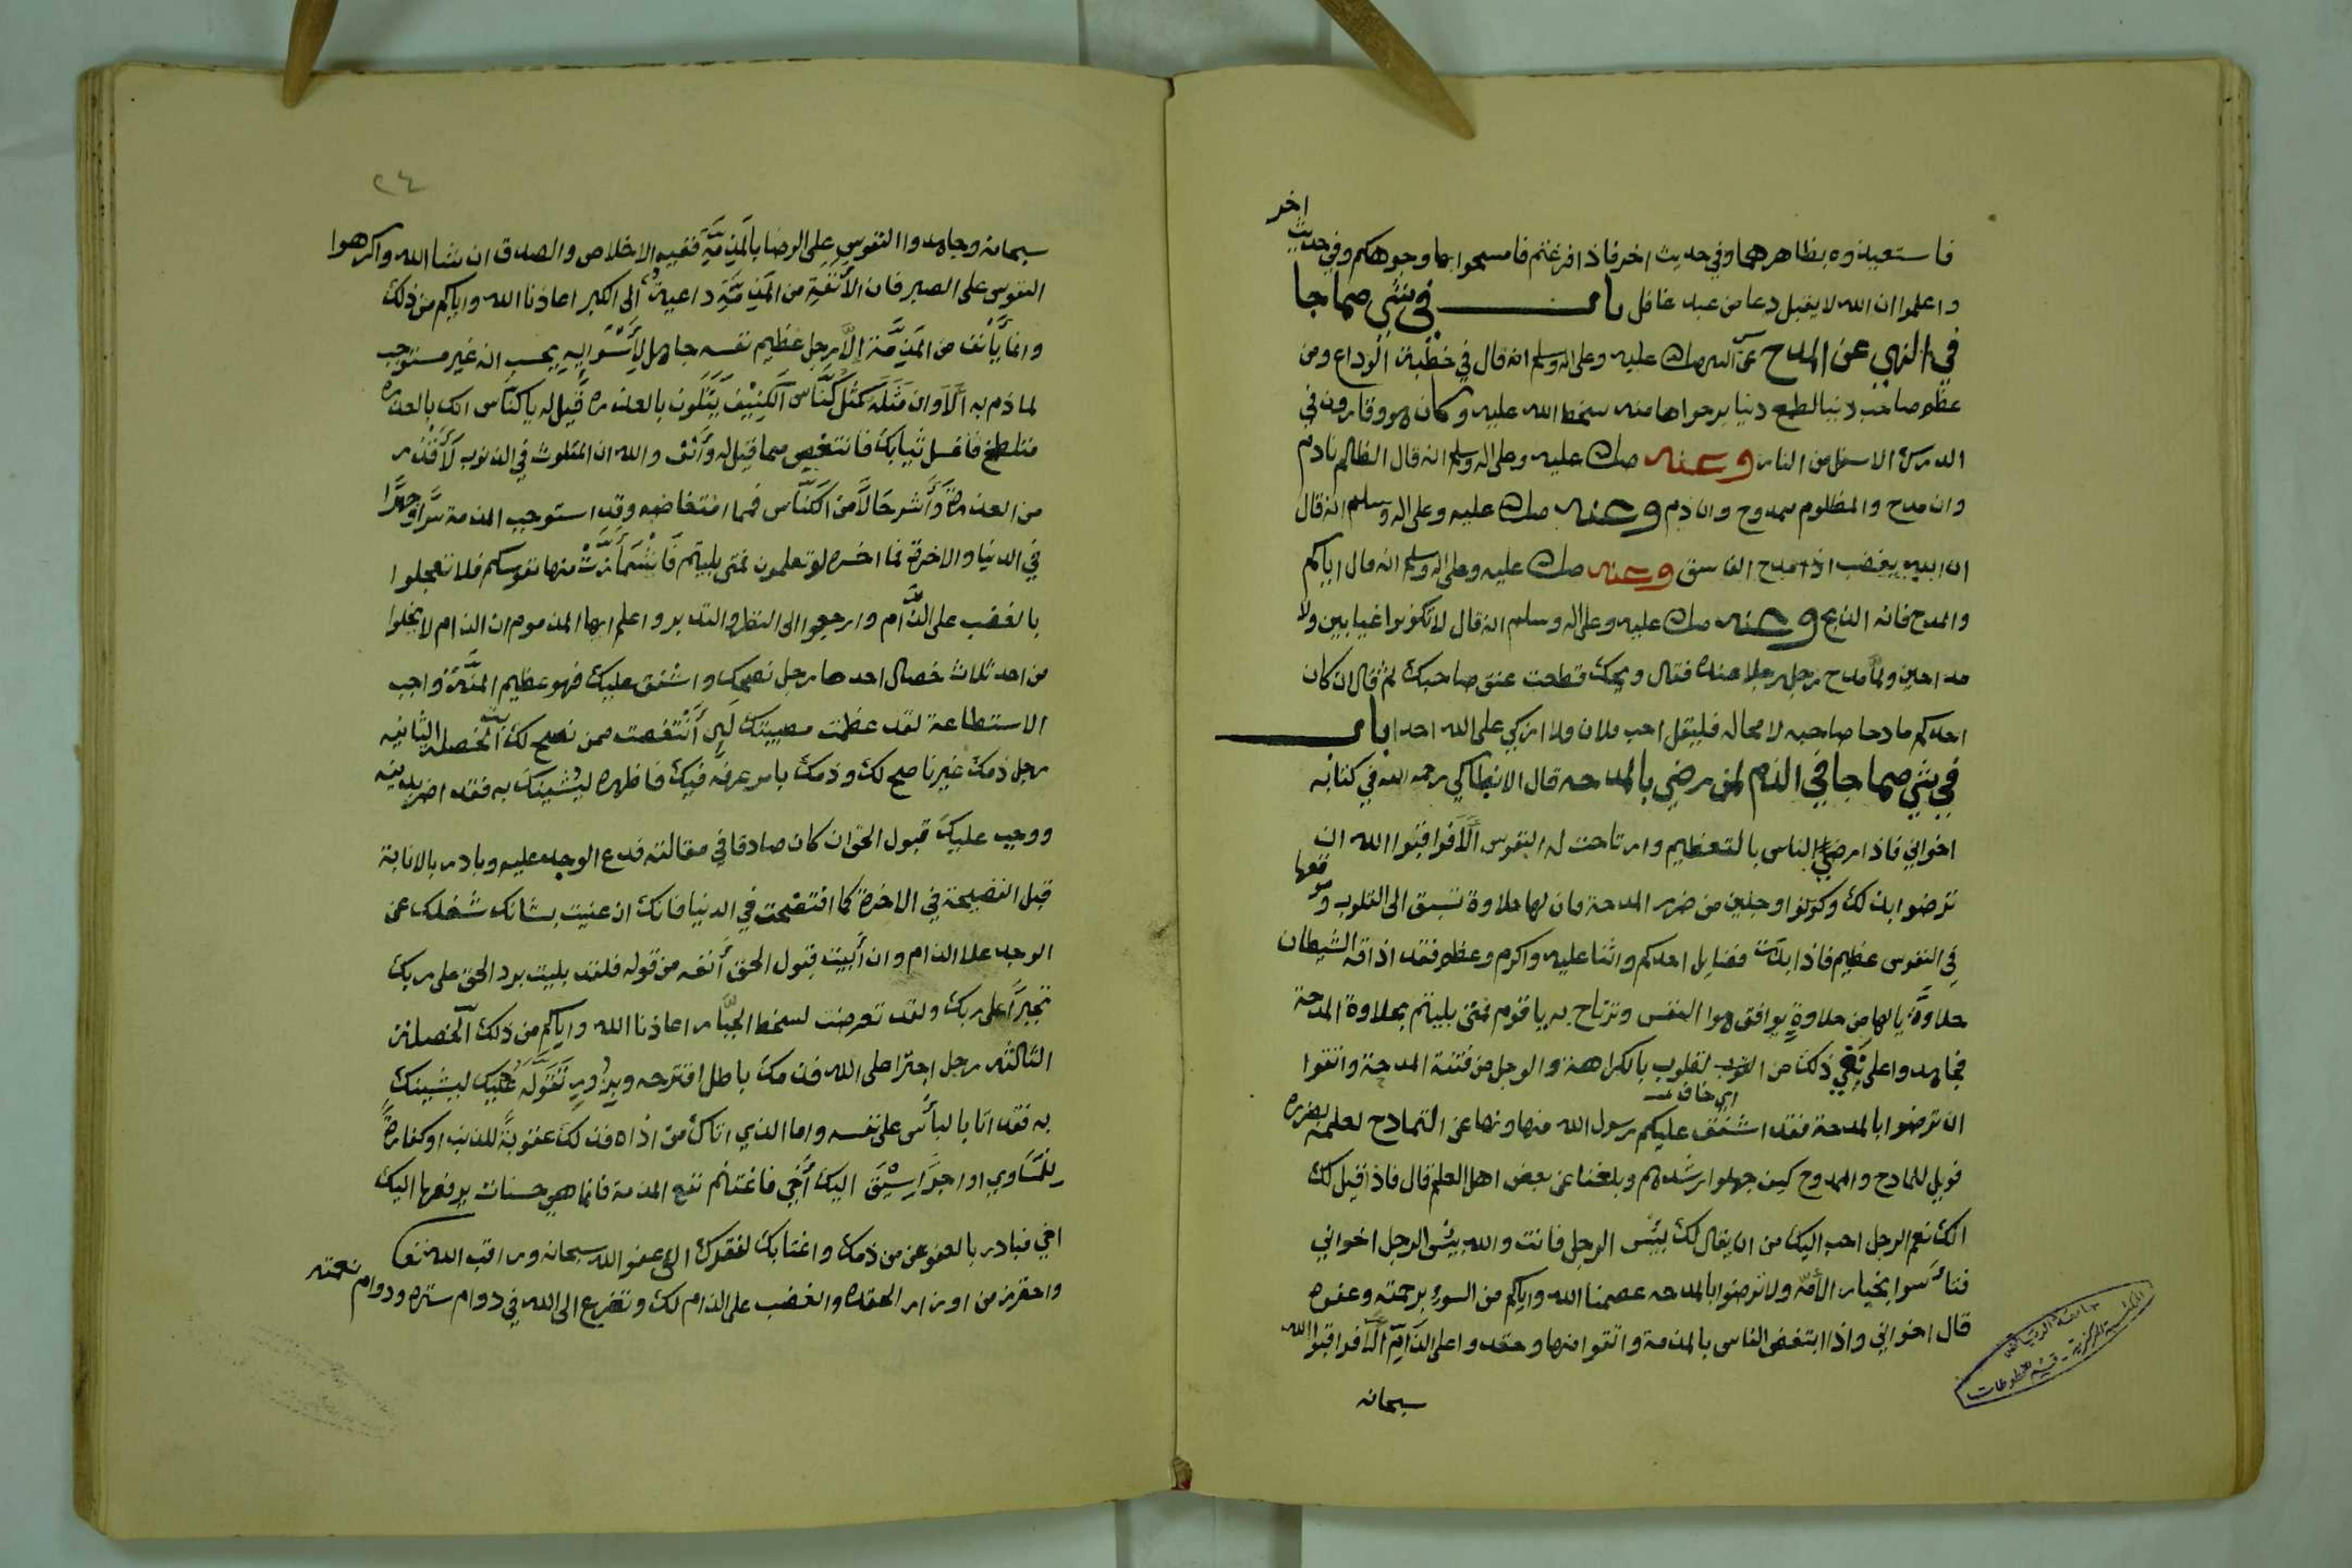 فاستعيذوه بظاهرهما وفي حديث اخر فاذا فرغتم فامسحوا بها وجوهكم وفي حديث اخر
واعلموا ان الله لا يقبل دعا من عبد غافل باب في شي مما جا
في النهي عن المدح عن النبي صلى الله عليه وعلى اله وسلم انه قال في خطبة الوداع ومن
عظم صاحب دنيا لطمع دنيا يرجوها منه سخط الله عليه وكان هو وقارون في
الدرك الاسفل من النار وعنه صلى الله عليه وعلى اله وسلم انه قال الظالم نادم
وان مدح والمظلوم ممدوح وان ذم وعنه صلى الله عليه وعلى اله وسلم انه قال
ان الله يغضب اذا مدح الفاسق وعنه صلى الله عليه وعلى اله وسلم انه قال اياكم
والمدح فانه الذبح وعنه صلى الله عليه وعلى اله وسلم انه قال لا تكونوا عيابين ولا
مداحين ولما مدح رجل رجلا عنده فقال ويحك قطعت عنق صاحبك ثم قال ان كان
احدكم مادحا صاحبه لا محاله فليقل احب فلان ولا ازكي على الله احدا باب
في شي مما جا في الذم لمن رضي بالمدحه قال الانطاكي رحمه الله في كتابه
اخواني فاذا رضي الناس بالتعظيم وارتاحت له النفوس الا فراقبوا الله ان
ترضوا بذلك وكونوا وجلين من ضرر المدحة فان لها حلاوة تسبق الى القلوب وموقعها
في النفوس عظيم فاذا بدات فضايل احدكم واثنا عليه واكرم وعظم فقد اذاقه الشيطان
حلاوة يالها من حلاوة يوافق هوا النفس وترتاح به يا قوم فمتى بليتم بحلاوة المدحة
فجاهدوا على نفي ذلك من القلوب بالكراهة والوجل من فتنة المدحة واتقوا
ان ترضوا بالمدحة فقد اشفق عليكم رسول الله منها ونها عن التمادح لعلمه بضرره
اي خاف
فويل للمادح والممدوح كيف جهلوا رشدهم وبلغنا عن بعض اهل العلم قال فاذا قيل لك
انك نعم الرجل احب اليك من ان يقال لك بيس الرجل فانت والله بيس الرجل اخواني
فتاسوا بخيار الامه ولا ترضوا بالمدحه عصمنا الله واياكم من السوء برحمته وعفوه
قال اخواني واذا ابتغض الناس بالمذمة واتقوا منها وحقدوا على الذام الا فراقبوا الله
سبحانه
٢٤
سبحانه وجاهدوا النفوس على الرضا بالمذمة ففيه الاخلاص والصدق ان شا الله واكرهوا
النفوس على الصبر فان الأنفة من المذمة داعية الى الكبر اعاذنا الله واياكم من ذلك
وانما يأنف من المذمة الا رجل عظيم نفسه جاهل يحسب انه غير مستوجب
لما ذم به الا وان مثله كمثل كناس الكنيف يتلوث بالعذره قيل له يا كناس انك بالعذره
متلطخ فاغسل ثيابك فانتغص مما قيل له وأنف والله ان المتلوث في الذنوب لأقذر
من العذرة وأشر حالا من الكناس فيما امتغاضه وقد استوجب المذمة سرا وجهرا
في الدنيا والاخرة فما اخسره لو تعلمون فمتى بليتم فاشمأزت منها نفوسكم فلا تعجلوا
بالغضب على الذام وارجعوا الى النظر والتدبر واعلم ايها المذموم ان الذام لا يخلوا
من احد ثلاث خصال احدها رجل نصحك واشفق عليك فهو عظيم المنة واجب
الاستطاعة لقد عظمت مصيبتك لين أنتغصت ممن نصح لك الخصله الثانيه
رجل ذمك غير ناصح لك وذمك بامر عرفه فيك فاظهره ليشينك به فقد اضر بدينه
ووجب عليك قبول الحق ان كان صادقا في مقالته فدع الوجد عليه وبادر بالانابة
قبل الفضيحة في الاخرة كما افتضحت في الدنيا فانك ان عنيت بشانك شغلك عن
الوجد على الذام وان أبيت قبول الحق أنفه من قوله فلقد بليت برد الحق على ربك
تجبرا على ربك ولقد تعرضت لسخط الجبار اعاذنا الله واياكم من ذلك الخصلة
الثالثة رجل اجترا على الله فذمك باطل افترحه وبزور تقوله عليك ليشينك
به فقد اتا بالبأس على نفسه واما الذي اتاك من اذاه فذلك عقوبة للذنب او كفارة
للمساوي او اجرا سيق اليك أخي فاغتنم نفع المذمة فانما هي حسنات يرفعها اليك
اخي فبادر بالعفو عن من ذمك واغتابك لفقرك الى عفو الله سبحانه وراقب الله
واحترز من اوزار الحقد والغضب على الذام لك وتضرع الى الله في دوام ستره ودوام نعمته